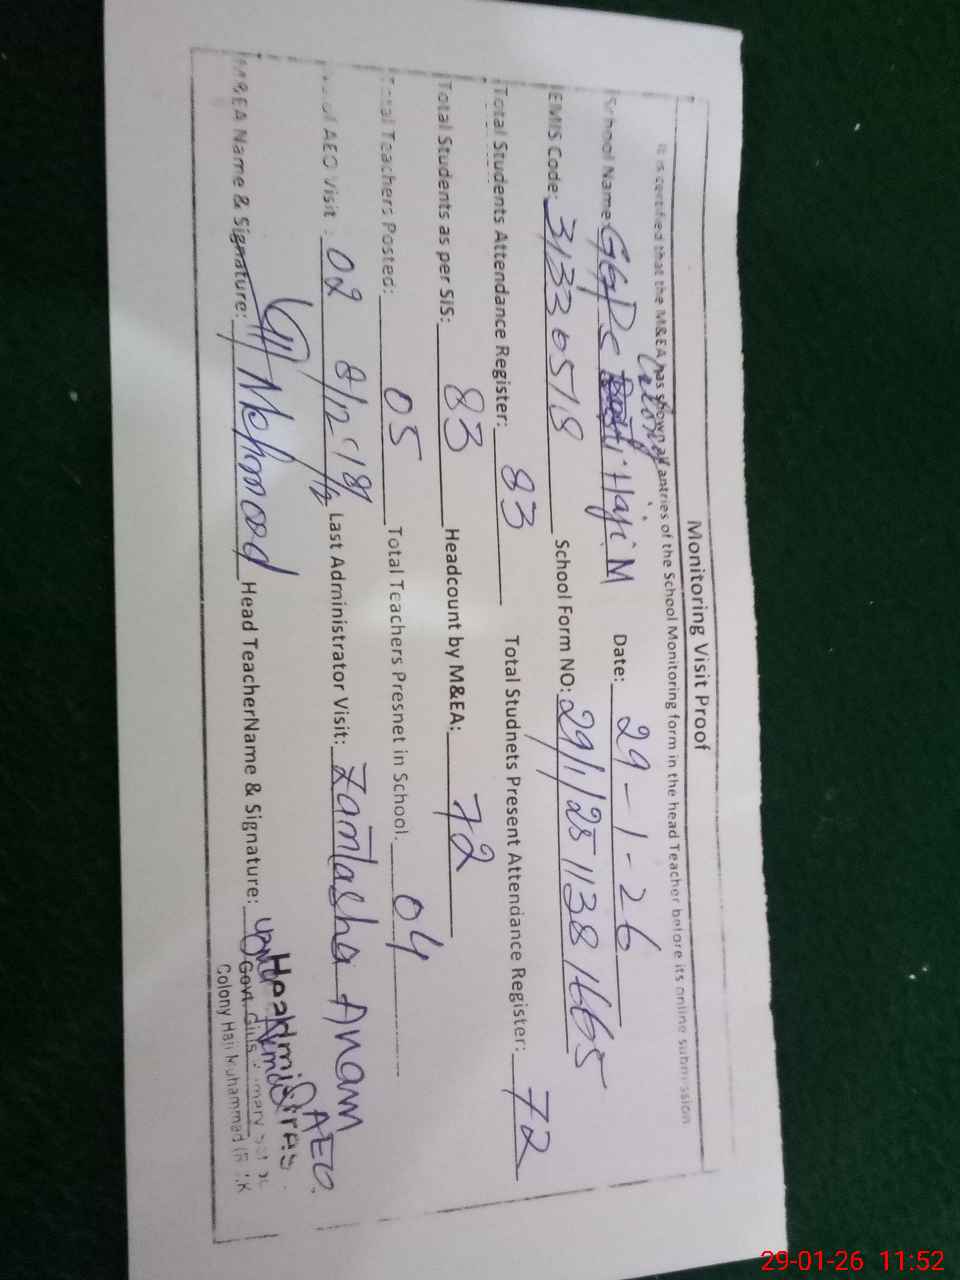 Monitoring Visit Proof
It is certified that the M&EA has shown all antries of the School Monitoring form in the head Teacher before its online submission
School Name: GGPS Colony Haji M Date: 29-1-26
EMIS Code: 31330518 School Form NO: 29/1/251138/1665
Total Students Attendance Register: 83 Total Studnets Present Attendance Register: 72
Total Students as per SIS: 83 Headcount by M&EA: 72
Total Teachers Posted: 05 Total Teachers Presnet in School. 04
AEO Visit : 02 Last Administrator Visit: Anam AEO.
M&EA Name & Signature: Mehmood Head TeacherName & Signature:
Headmistress
Govt. Girls
Colony Haji Muhammad
29-01-26 11:52